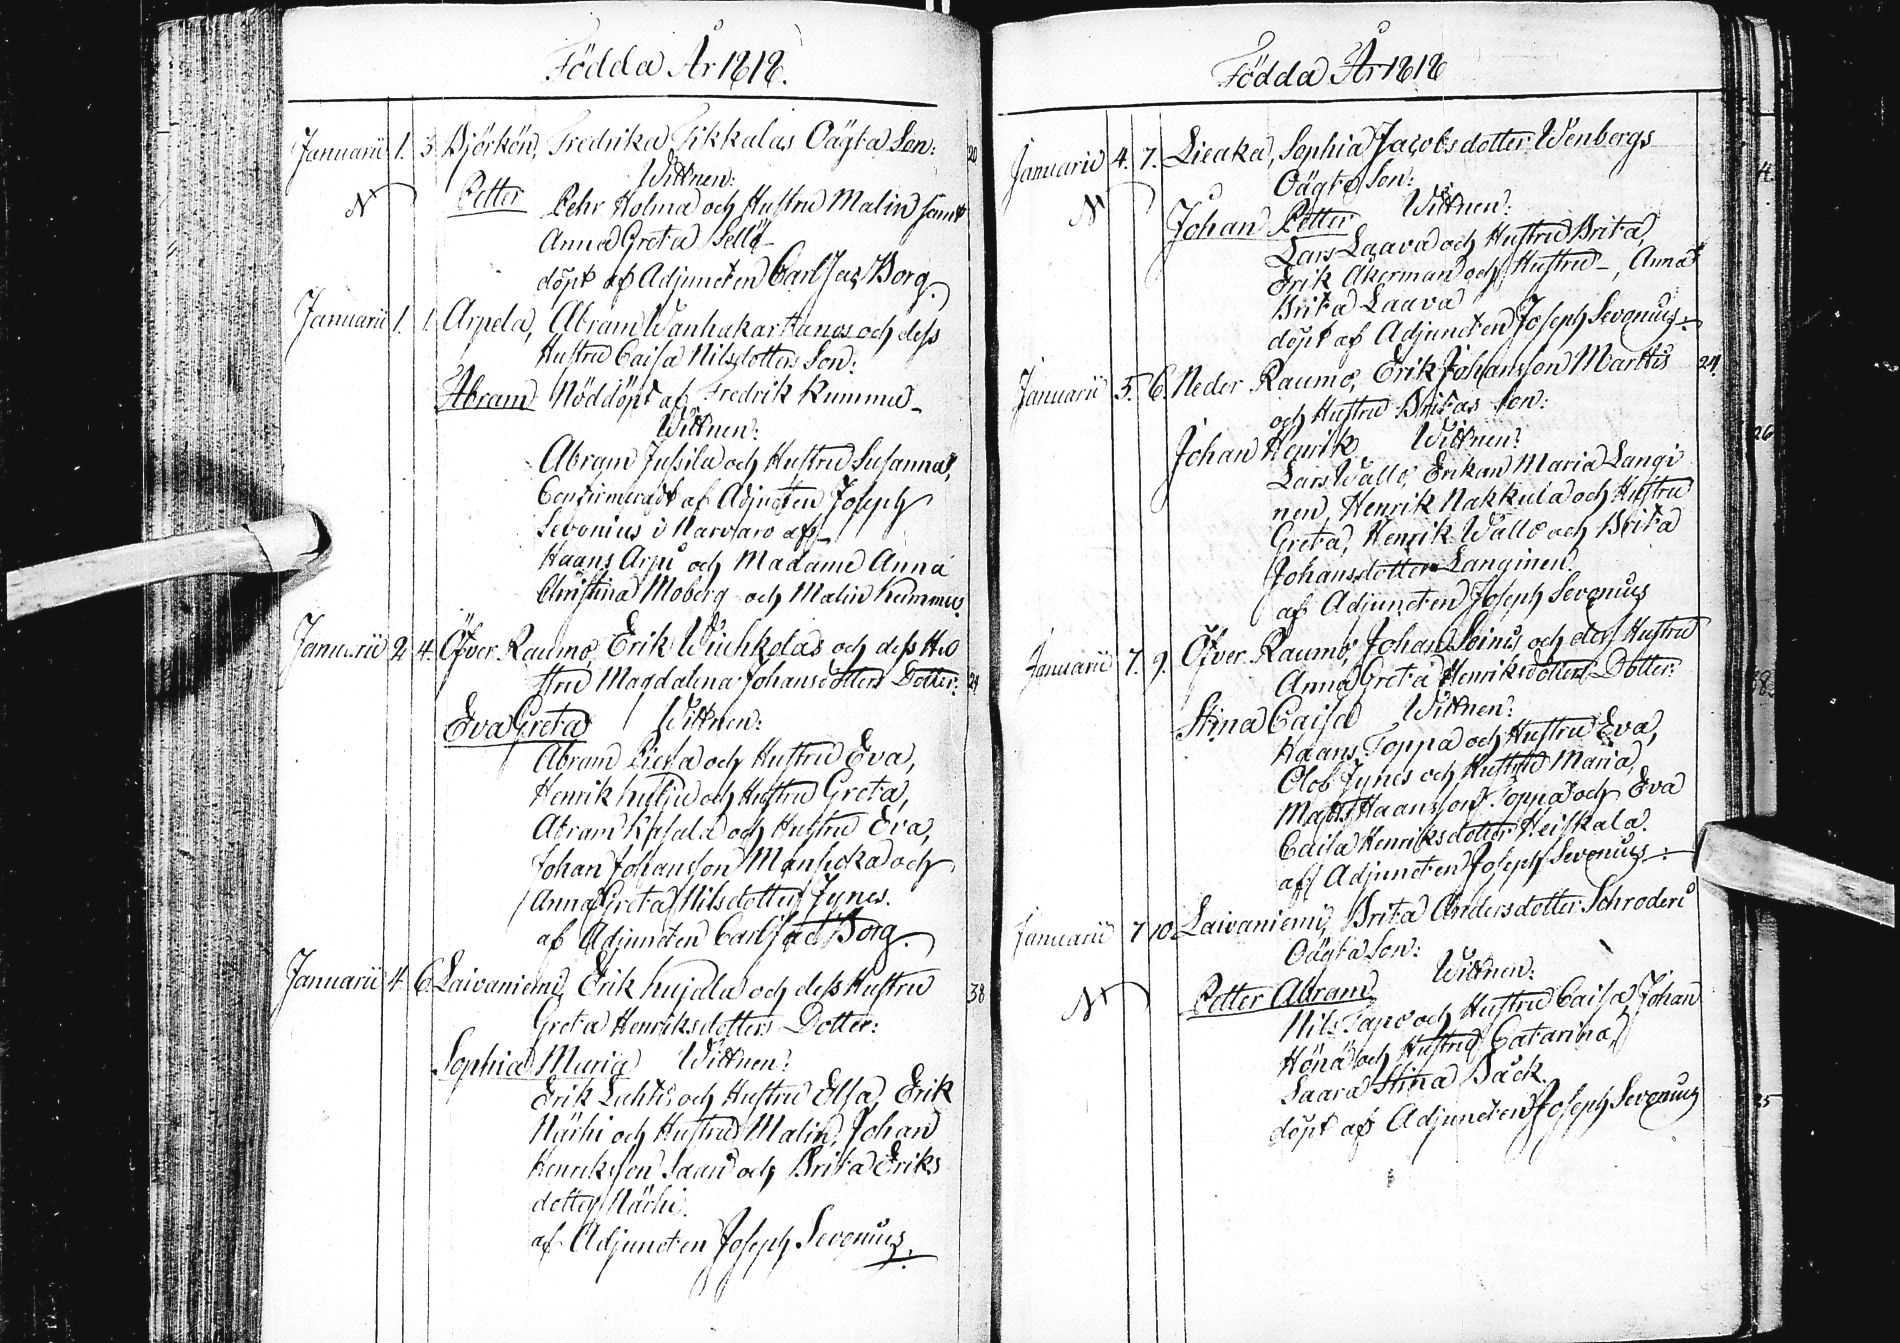 Födda År 1818.
Januarii 1. 3. Björkön, Fredrika Tikkalas Oägta Son: 20
Wittnen:
N Petter Pehr Holma och Hustru Malin samt
Anna Greta
döpt af Adjuncten Carl Jac. Borg.
Januarii 1. 1. Arpela, Abram Wanhakartanos och dess
Hustru Caisa Nilsdotters Son:
Abram Nöddöpt af Fredrik Kummu
Wittnen:
Abram Jussila och Hustru Susanna,
af Adjuncten Joseph
Sevonius i Narvaro af
Haans Arpu och Madame Anna
Christina Moberg och Malin Kummu.
Januarii 2. 4. Öfver Raumo, Erik Wiuhkolas och dess Hu
stru Magdalena Johansdotters Dotter: 24
Eva Greta Wittnen:
Abram och Hustru Eva,
Henrik och Hustru Greta,
Abram och Hustru Eva,
Johan Johansson och
Anna Greta Nilsdotter Jynes.
af Adjuncten Carl Jac Borg.
Januarii 4. 6. Laivaniemi, Erik hujala och dess Hustru 38
Greta Henriksdotters Dotter:
Sophia Maria Wittnen:
Erik Lahti och Hustru Elsa, Erik
Närhi och Hustru Malin, Johan
Henriksson och Brita Eriks
dotter Närhi.
af Adjuncten Joseph Sevonius.
Födda År 1818
Januarii 4. 7. Lieaka, Sophia Jacobsdotter Wenbergs
Oägta Son:
N Johan Petter Wittnen:
Lars Laava och Hustru Brita,
Erik Åkerman och Hustru –, Anna
Brita Laava
döpt af Adjuncten Joseph Sevonius.
Januarii 5. 6. Neder Raumo, Erik Johansson Marttis 24
och Hustru Britas Son:
Johan Henrik Wittnen:
Lars Wallo, Enkan Maria Langi
nen, Henrik Nakkula och Hustru
Greta, Henrik Wallo och Brita
Johansdotter Langinen.
af Adjuncten Joseph Sevonius
Januarii 7. 9. Öfver Raumo, Johan Soinis och dess Hustru
Anna Greta Henriksdotters Dotter:
Stina Caisa Wittnen:
Haans Toppa och Hustru Eva,
Olof Jynes och Hustru Maria,
Matts Haansson Toppa och Eva
Caisa Henriksdotter Heiskala.
af Adjuncten Joseph Sevonius.
Januarii 7 10. Laivaniemi, Brita Andersdotter Schroderi
Oägta Son:
N Petter Abram Wittnen:
Nils Tapo och Hustru Caisa, Johan
Hönä och Hustru Catarina,
Saara Stina Bäck.
döpt af Adjuncten Joseph Sevonius
26
25